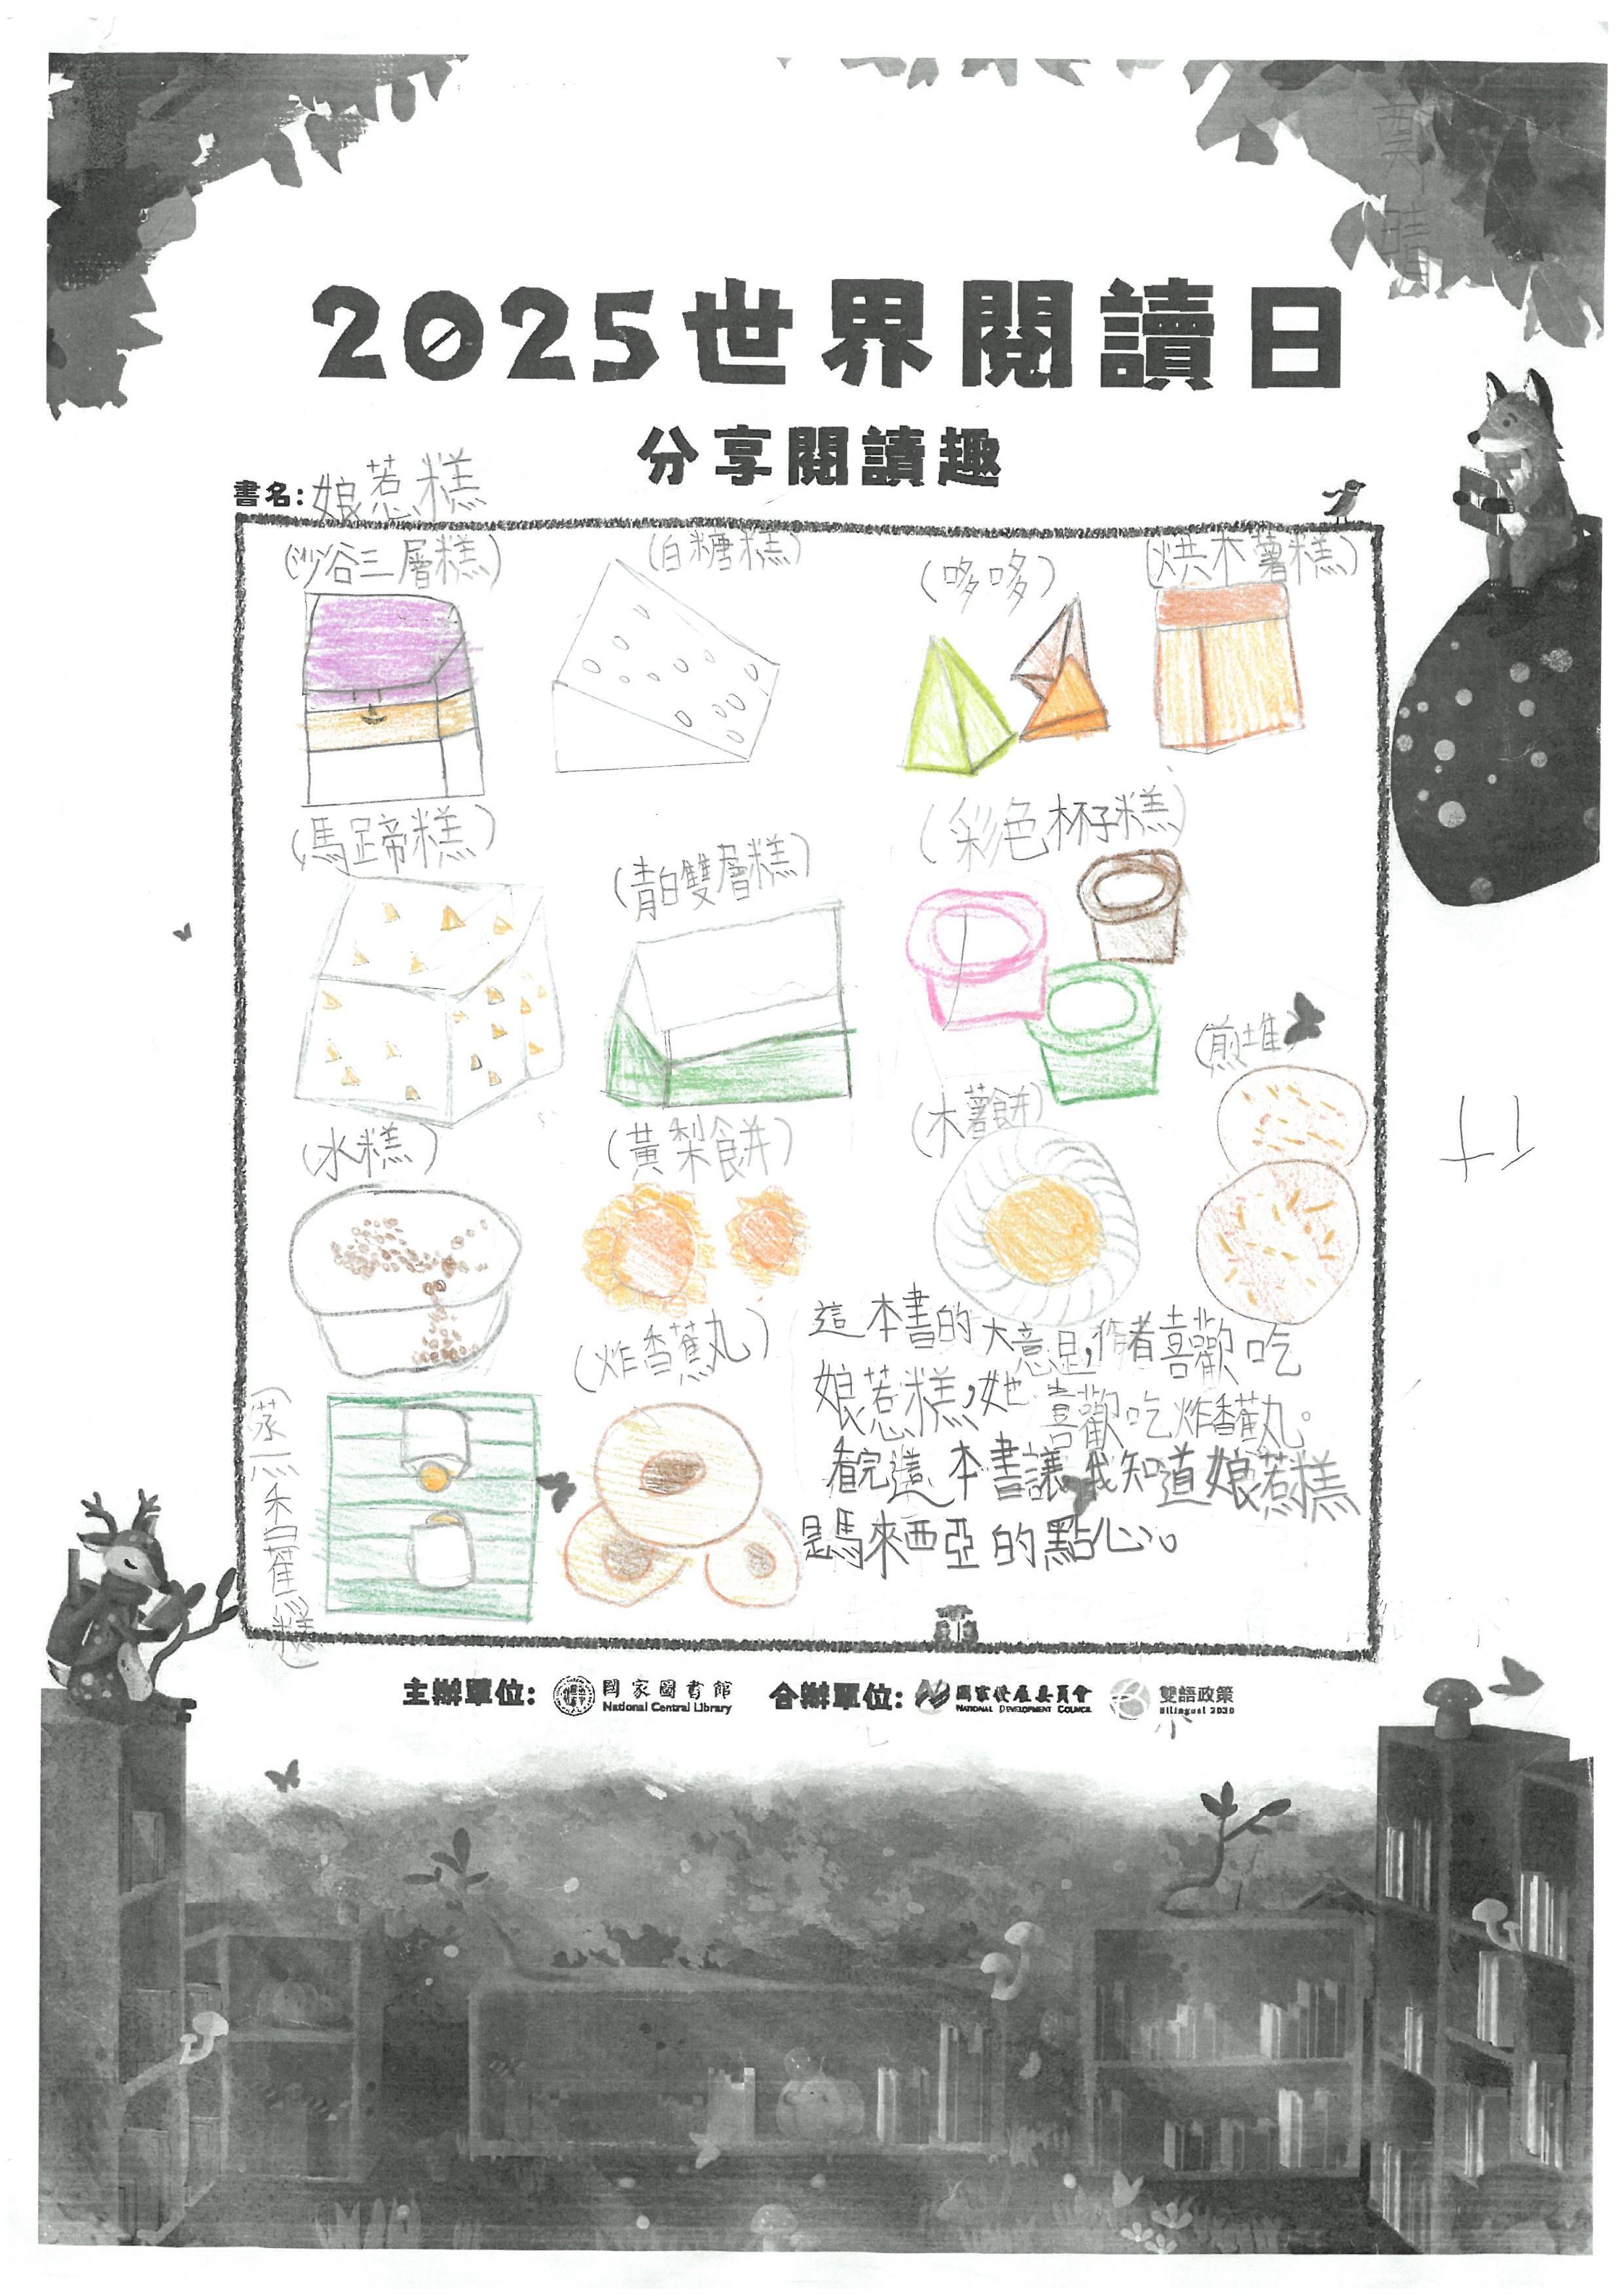 鄭
晴
2025世界閱讀日
分享閱讀趣
書名：娘惹糕
(沙谷三層糕)
(白糖糕)
(哆哆)
(烘木薯糕)
(馬蹄糕)
(青白雙層糕)
(彩色杯子糕)
(煎堆)
(水糕)
(黃梨餅)
(木薯餅)
(炸香蕉丸)
(蒸香蕉糕)
這本書的大意是,作者喜歡吃
娘惹糕,她喜歡吃炸香蕉丸。
看完這本書讓我知道娘惹糕
是馬來西亞的點心。
主辦單位：國家圖書館 National Central Library 合辦單位：國家發展委員會 NATIONAL DEVELOPMENT COUNCIL 雙語政策 Bilingual 2030